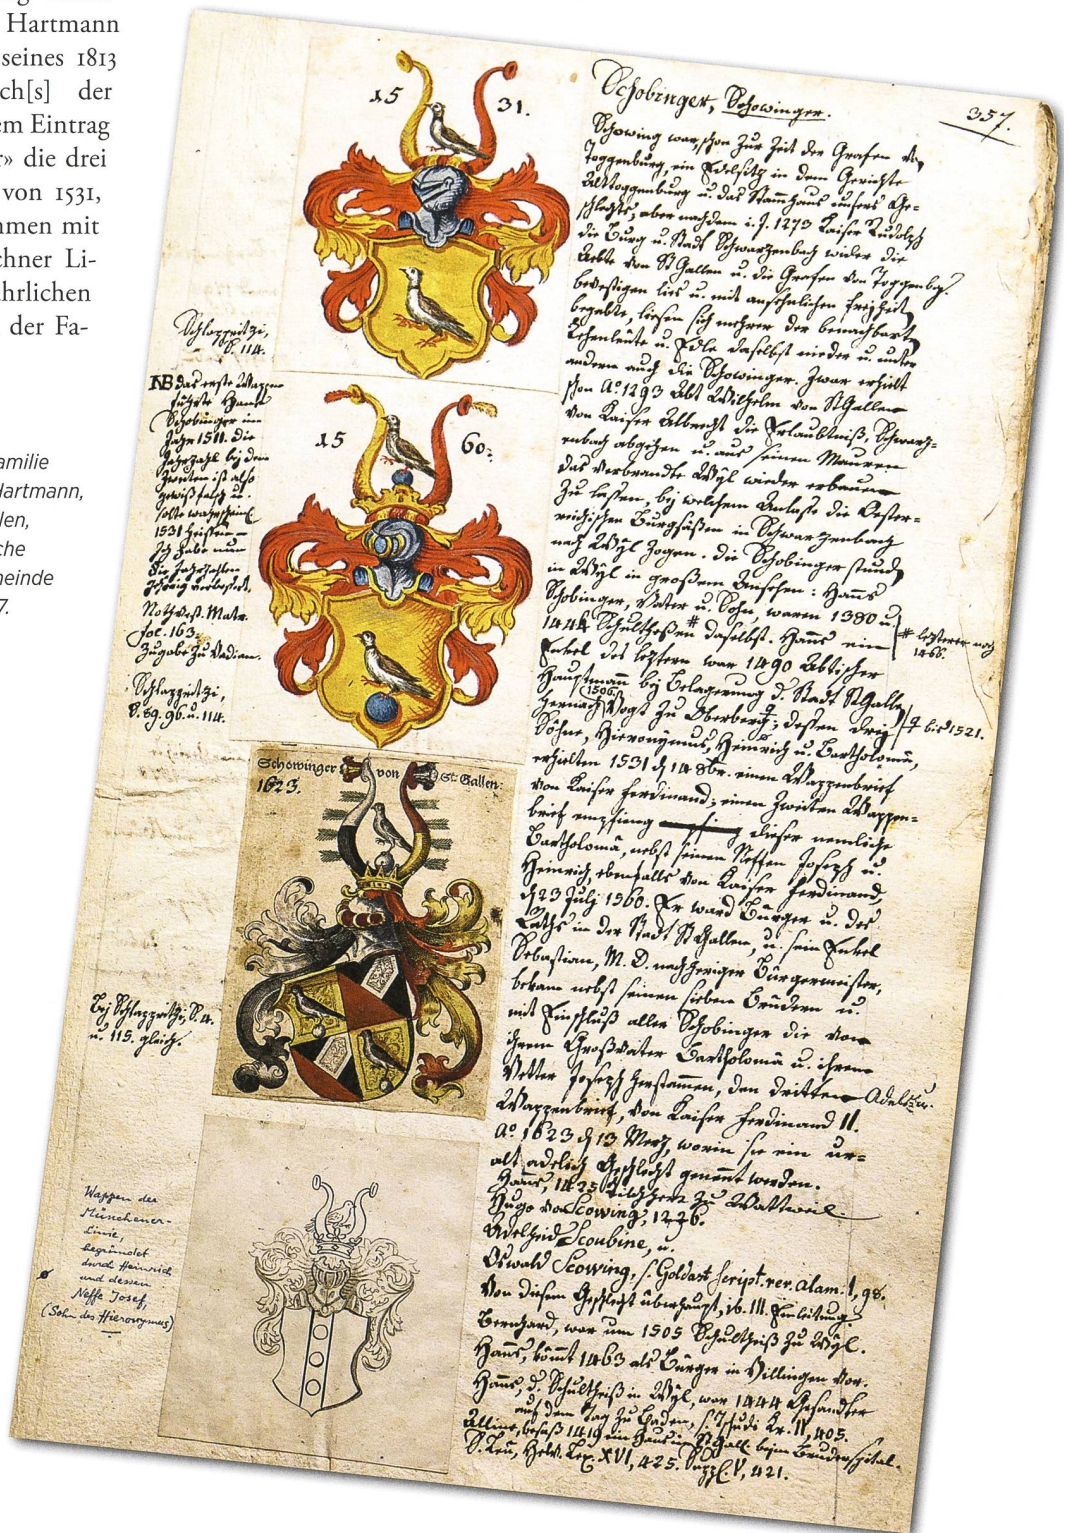 Hartmann
seines 1813
ch[s] der
em Eintrag
r» die drei
von 1531,
mmen mit
chner Li-
ührlichen
der Fa-
amilie
Hartmann,
len,
che
neinde
7.
15 31.
15 60.
Schowinger von St. Gallen.
1623.
Schlappritzi,
S. 114.
NB das erste Wappen
führte Hans
Schobinger im
Jahr 1511. die
Jahrzahl bej dem
zweiten ist also
gewiß falsch u.
sollte
1531 heißen –
Ich habe nun
die Jahrzahlen
verbessert.
fol. 163.
Zugabe zu Vadian.
Schlappritzi,
S. 89. 96. u. 114.
Bej Schlappritzi, S. 4.
u. 115. gleich.
Wappen der
Münchener-
Linie,
begründet
durch Heinrich
und dessen
Neffe Josef,
(Sohn des Hieronymus)
357.
Schobinger, Schowinger.
Schowing war schon zur Zeit der Grafen von
Toggenburg, ein Edelsitz in dem Gerichte
Alttoggenburg u. das Stammhaus unsers Ge-
schlechts, aber nachdem i. J. 1273 Kaiser Rudolph
die Burg u. Stadt Schwarzenbach wider die
Aebte von St Gallen u. die Grafen von Toggenbg.
bevestigen lies u. mit ansehnlichen Freyheiten
begabte, liesen sich mehrer der benachbarten
Lehenleute u. Edle daselbst nieder u. unter
andern auch die Schowinger. Zwar erhielt
schon Ao. 1293 Abt Wilhelm von St Gallen
von Kaiser Albrecht die Erlaubtniß, Schwarz-
enbach abzuhen u. aus seinen Mauren
das verbrandte Wyl wieder erbauen
zu lassen, bej welchem Anlasse die Oester-
reichischen Burgsäßen in Schwarzenbach
nach Wyl zogen. die Schobinger stunden
in Wyl in großem Ansehen: Hanns
Schobinger, Vater u. Sohn, waren 1380 u.
144 Schultheßen # daselbst. Hanns ein
# letzterer noch
1466.
Enkel des letztern war 1490 Abtischer
Hauptmann bej Belagerung d. Stadt St Gallen
1506.
hernach Vogt zu Oberberg; dessen drei
bis 1521.
Söhne, Hieronymus, Heinrich u. Bartholomä,
erhielten 1531 d 14 8br. einen Wappenbrief
von Kaiser Ferdinand; einen zweiten Wappen-
brief empfieng dieser nemliche
Bartholomä, nebst seinen Neffen Joseph u.
Heinrich, ebenfalls von Kaiser Ferdinand,
d 23 Julj 1560. Er ward Burger u. des
Raths in der Stadt St Gallen, u. sein Enkel
Sebastian, M. D. nachheriger Bürgermeister,
bekam nebst seinen sieben Brüdern u.
mit Einschluß aller Schobinger die von
ihrem Großvater Bartholomä u. ihrem
Vetter Joseph herstammen, den dritten Adels u.
Wappenbrief, von Kaiser Ferdinand II.
Ao. 1623 d 13 Merz, worin sie ein ur-
alt adelich Geschlecht genennt werden.
Hanns, 1425 Kirchherr zu Wattweil.
Hugo von Scowing, 1226.
Adelheid Scoubine, u.
Oswald Scowing, s. Goldast Script. rer. Alam. I, 98.
Von diesem Geschlecht überhaupt, ib. III. Einleitung.
Bernhard, war um 1505 Schultheiß zu Wyl.
Hanns, kömt 1463 als Burger in Villingen vor.
Hanns, d. Schultheiß in Wyl, war 1444 Gesandter
auf dem Tag zu Baden, s. Tschudi Kr. II, 405.
besaß 1419 ein Haus in St Gall. beim Bruderspital.
S. Leu, Helv. Lex. XVI, 425. Suppl. V, 421.